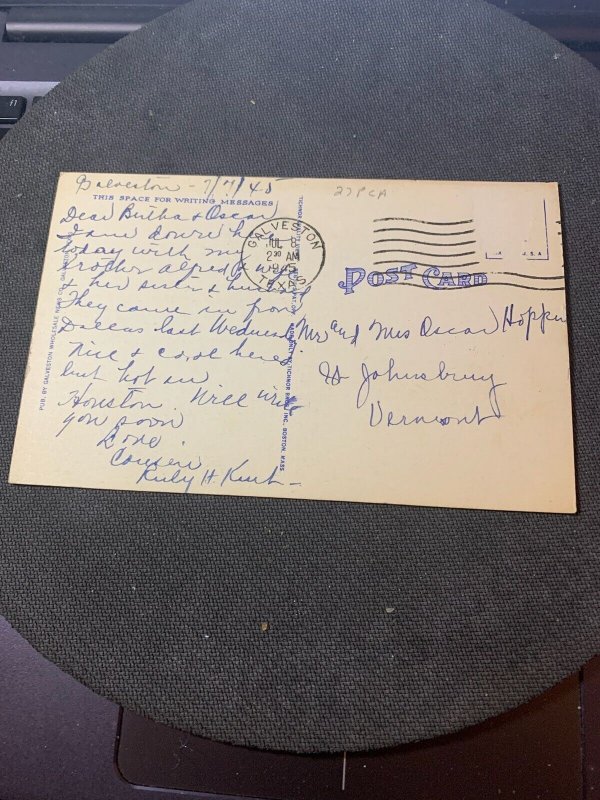 Galveston - 7/7/45
THIS SPACE FOR WRITING MESSAGES
Dear Bertha & Oscar
I am down here
today with my
brother Alfred & wife
& her sister &
They came in from
Dallas last Wednesday
Nice & cool here
but hot in
Houston. Will write
you soon
Love
Cousin
Ruby H.
PUB. BY GALVESTON WHOLESALE NEWS CO.
TICHNOR BROS. INC., BOSTON, MASS.
GALVESTON
JUL 8
2 30 AM
1945
TEXAS
27PCA
U.S.A
POST CARD
Mr and Mrs Oscar Hopper
St Johnsbury
Vermont
f1